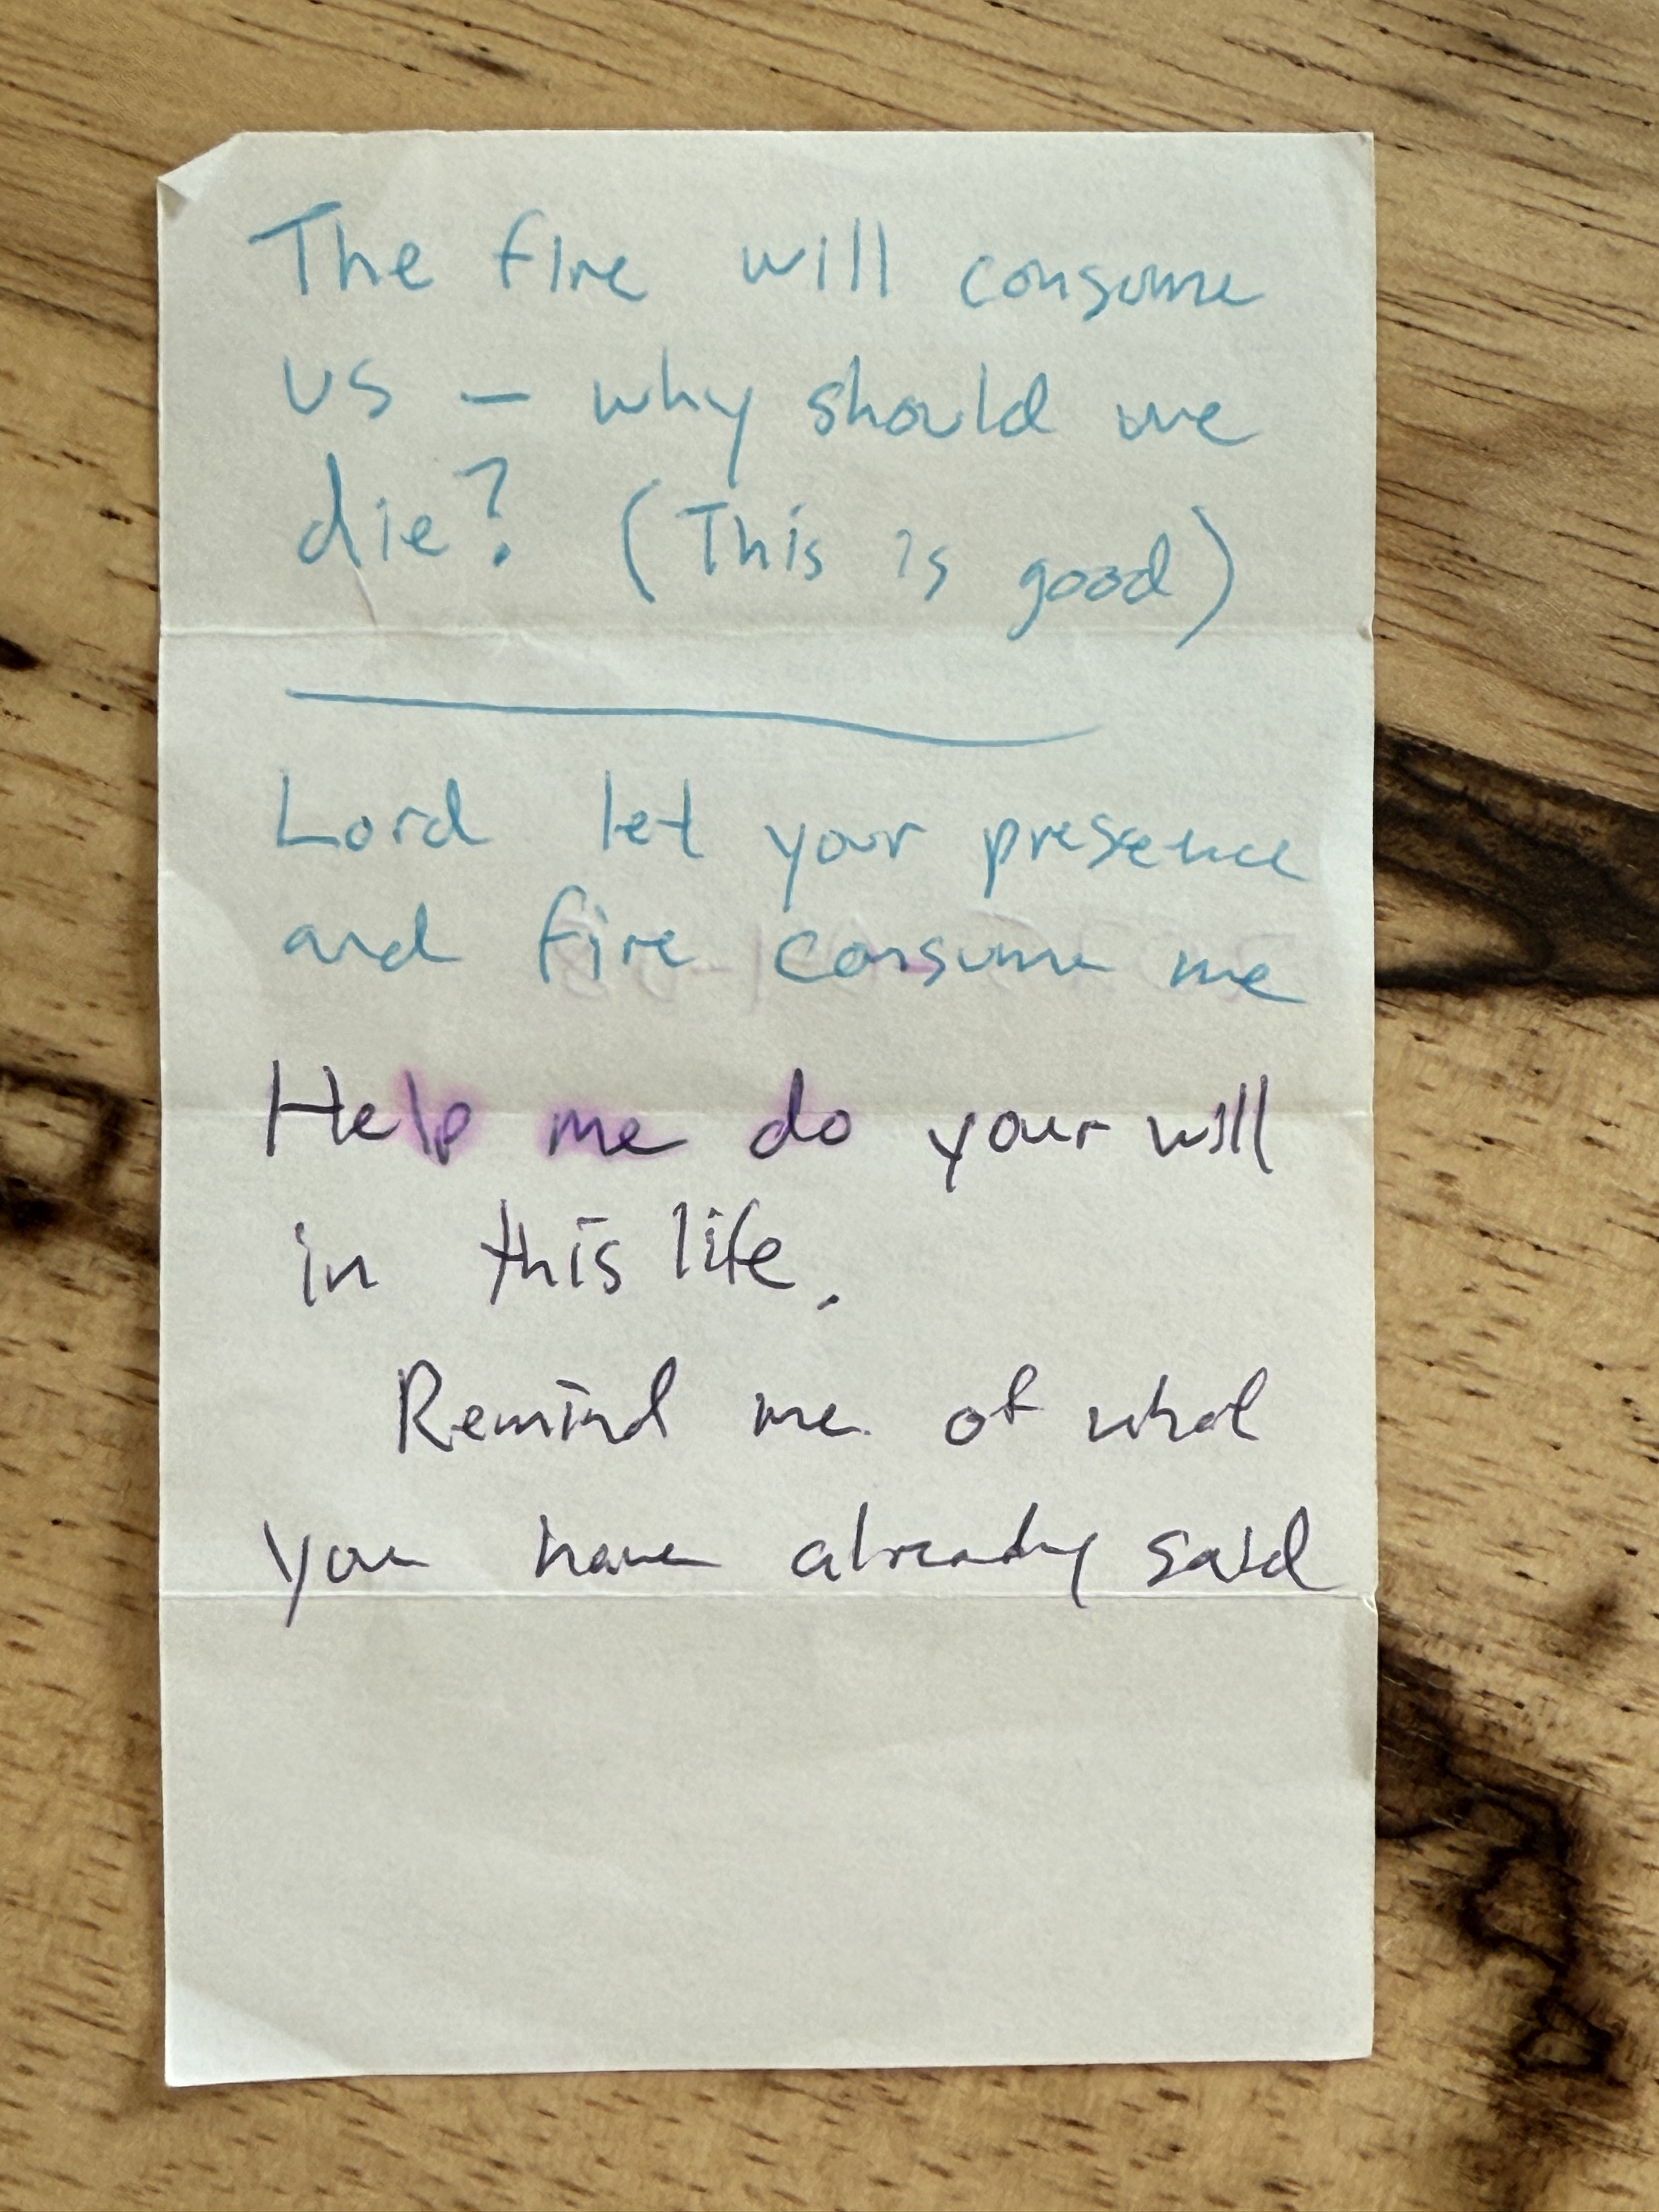 The fire will consume
us – why should we
die? (This is good)
Lord let your presence
and fire consume me
Help me do your will
in this life.
Remind me of what
you have already said